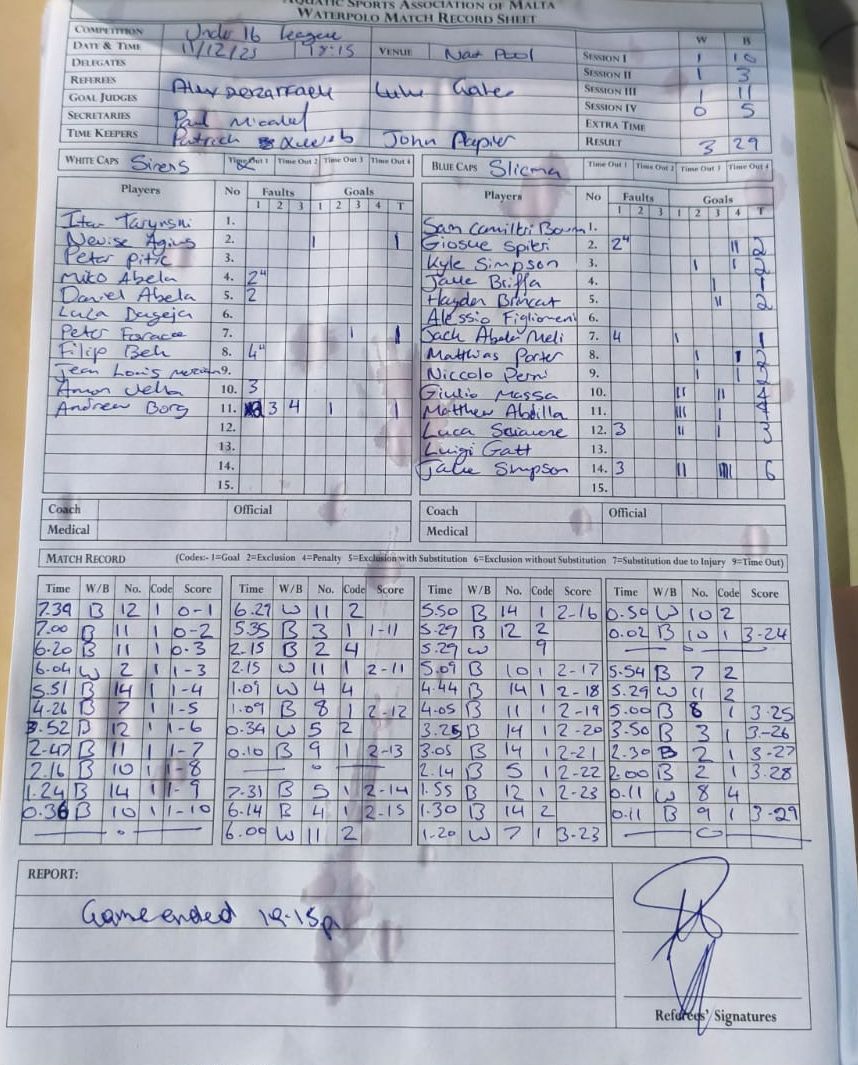 AQUATIC SPORTS ASSOCIATION OF MALTA
WATERPOLO MATCH RECORD SHEET
COMPETITION Under 16 League
DATE & TIME 11/12/25 18:15 VENUE Nat Pool
DELEGATES
REFEREES Alex Luke
GOAL JUDGES
SECRETARIES Paul Micalef
TIME KEEPERS Patrick Xuereb John Papier
W B
SESSION I 1 10
SESSION II 1 3
SESSION III 1 11
SESSION IV 0 5
EXTRA TIME
RESULT 3 29
WHITE CAPS Sirens Time Out 1 Time Out 2 Time Out 3 Time Out 4
Players No Faults Goals
1 2 3 1 2 3 4 T
1.
Nevise Agius 2. 1 1
Peter 3.
Miko Abela 4. 2"
Daniel Abela 5. 2
Luca 6.
Peter 7. 1 1
Filip Beh 8. 4"
Jean Louis 9.
Vella 10. 3
Andrew Borg 11. 3 4 1 1
12.
13.
14.
15.
Coach Official
Medical
BLUE CAPS Sliema Time Out 1 Time Out 2 Time Out 3 Time Out 4
Players No Faults Goals
1 2 3 1 2 3 4 T
Sam Camilleri 1.
Giosue Spiteri 2. 2" 11 2
Kyle Simpson 3. 1 1 2
Briffa 4. 1 1
Hayden Brincat 5. 11 2
Alessio Figliomeni 6.
Jack Abela Meli 7. 4 1 1
Matthias Porter 8. 1 1 2
Niccolo 9. 1 1 2
Giulio Massa 10. 11 11 4
Matthew Abdilla 11. 111 1 4
Luca 12. 3 11 1 3
Luigi Gatt 13.
Simpson 14. 3 11 1111 6
15.
Coach Official
Medical
MATCH RECORD (Codes:- 1=Goal 2=Exclusion 4=Penalty 5=Exclusion with Substitution 6=Exclusion without Substitution 7=Substitution due to Injury 9=Time Out)
Time W/B No. Code Score
7.39 B 12 1 0-1
7.00 B 11 1 0-2
6.20 B 11 1 0.3
6.04 W 2 1 1-3
5.51 B 14 1 1-4
4.26 B 7 1 1-5
3.52 B 12 1 1-6
2.47 B 11 1 1-7
2.16 B 10 1 1-8
1.24 B 14 1 1-9
0.36 B 10 1 1-10
Time W/B No. Code Score
6.27 W 11 2
5.35 B 3 1 1-11
2.15 B 2 4
2.15 W 11 1 2-11
1.09 W 4 4
1.09 B 8 1 2-12
0.34 W 5 2
0.10 B 9 1 2-13
7.31 B 5 1 2-14
6.14 B 4 1 2-15
6.00 W 11 2
Time W/B No. Code Score
5.50 B 14 1 2-16
5.29 B 12 2
5.29 W 9
5.09 B 10 1 2-17
4.44 B 14 1 2-18
4.05 B 11 1 2-19
3.25 B 14 1 2-20
3.05 B 14 1 2-21
2.14 B 5 1 2-22
1.55 B 12 1 2-23
1.30 B 14 2
1.20 W 7 1 3-23
Time W/B No. Code Score
0.50 W 10 2
0.02 B 10 1 3-24
5.54 B 7 2
5.29 W 11 2
5.00 B 8 1 3.25
3.50 B 3 1 3-26
2.30 B 2 1 3-27
2.00 B 2 1 3.28
0.11 W 8 4
0.11 B 9 1 3-29
REPORT:
Game ended 19.15p
Referees' Signatures